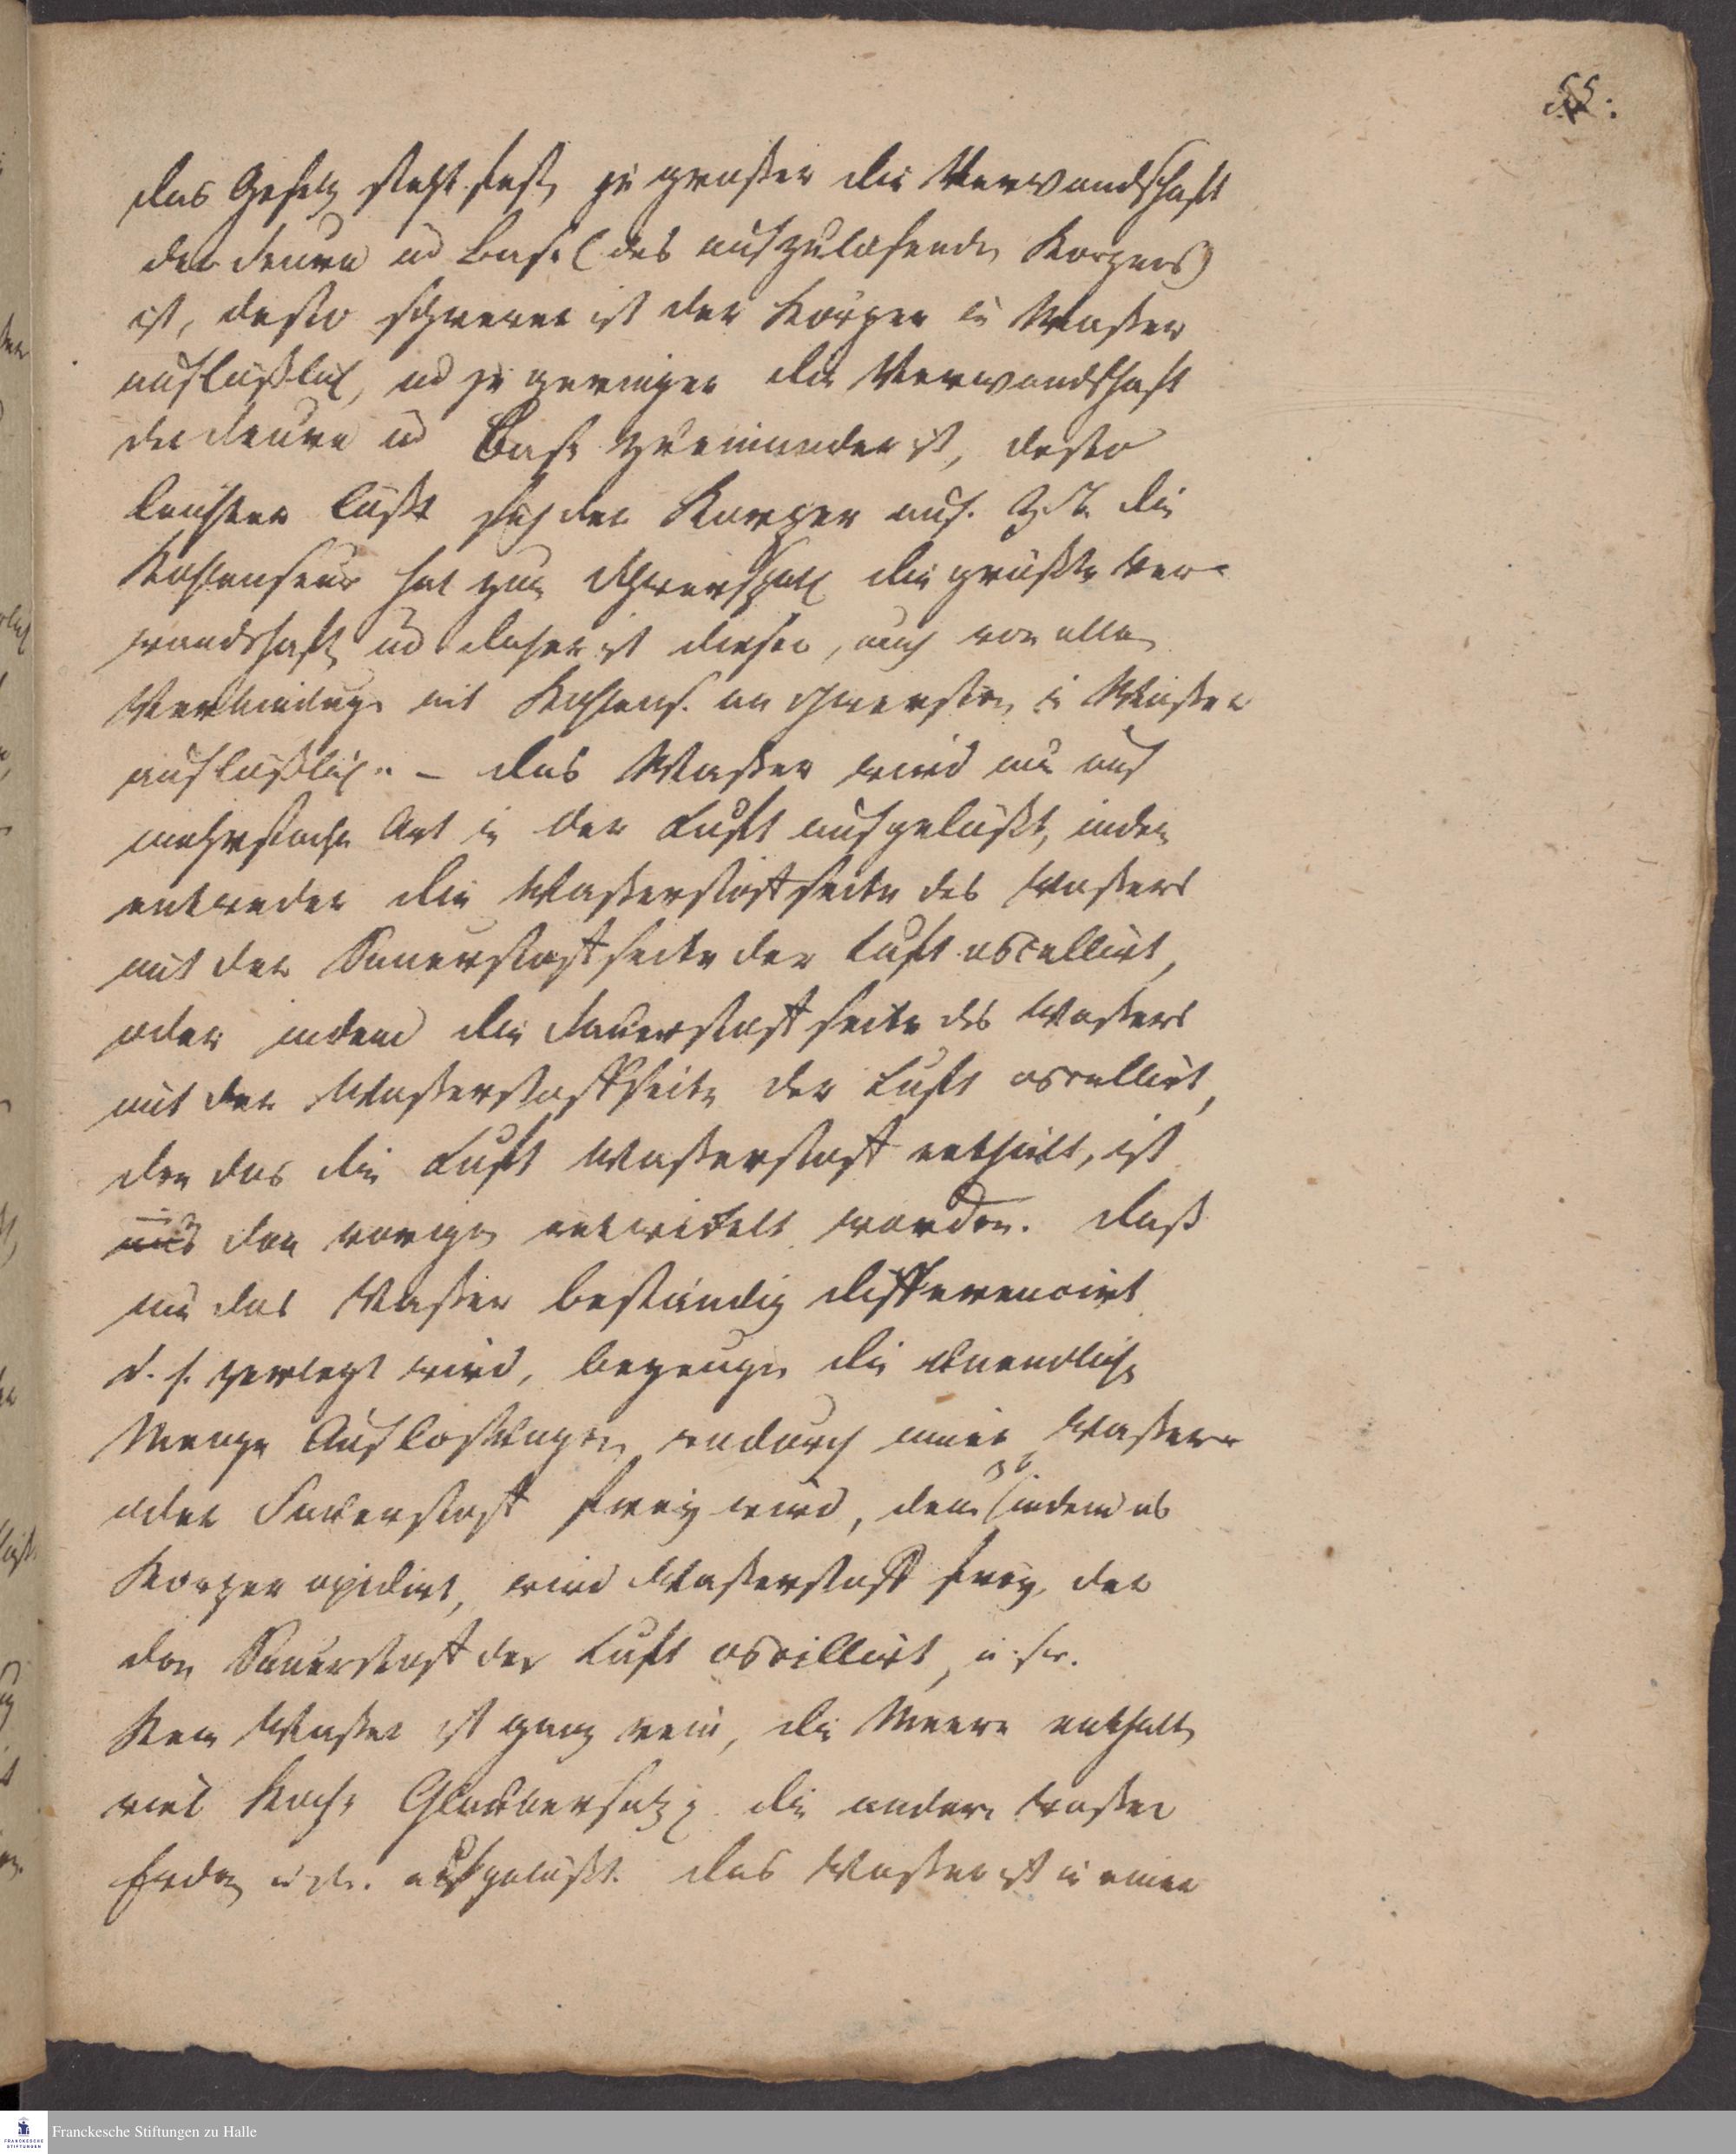 55.
das Gesetz steht fest, je großer die Verwandschaft
der Seure ud Base (des aufzulosenden Korpers)
ist, desto schwerer ist der Körper in Waßer
auflößlich, ud je geringer die Verwandschaft
der Seure ud Base zueinander ist, desto
leichter lößt sich der Korper auf. Z. B. die
Kohlenseure hat zum Schwerspath die größte Ver-
wandschaft ud daher ist dieser, auch von allen
Verbindunge mit Kohlens. am schwersten in Waßer
auflößlich. – das Waßer wird nu auf
mehrfache Art in der Luft aufgelößt, indem
entweder die Waßerstoffseite des Waßers
mit der Sauerstoffseite der Luft oscellirt,
oder indem die Sauerstoffseite des Waßers
mit der Waßerstoffseite der Luft oscellirt,
den das die Luft Waßerstoff enthält, ist
aus den vorigen entwickelt worden. daß
nu das Waßer beständig differencirt
d. h. zerlegt wird, bezeugen die unendliche
Menge Auflosungen, wodurch immer Waßer
oder Sauerstoff frey wird, denn indem es
Korper oxidirt, wird Waßerstoff frey, der
den Sauerstoff der Luft oscillirt, u. s. w.
Kein Waßer ist ganz rein, die Meere enthalten
viel Koch, Glaubersalz, die andern Waßer
Erden u. s. w. aufgelößt. das Waßer ist in einer
Franckesche Stiftungen zu Halle